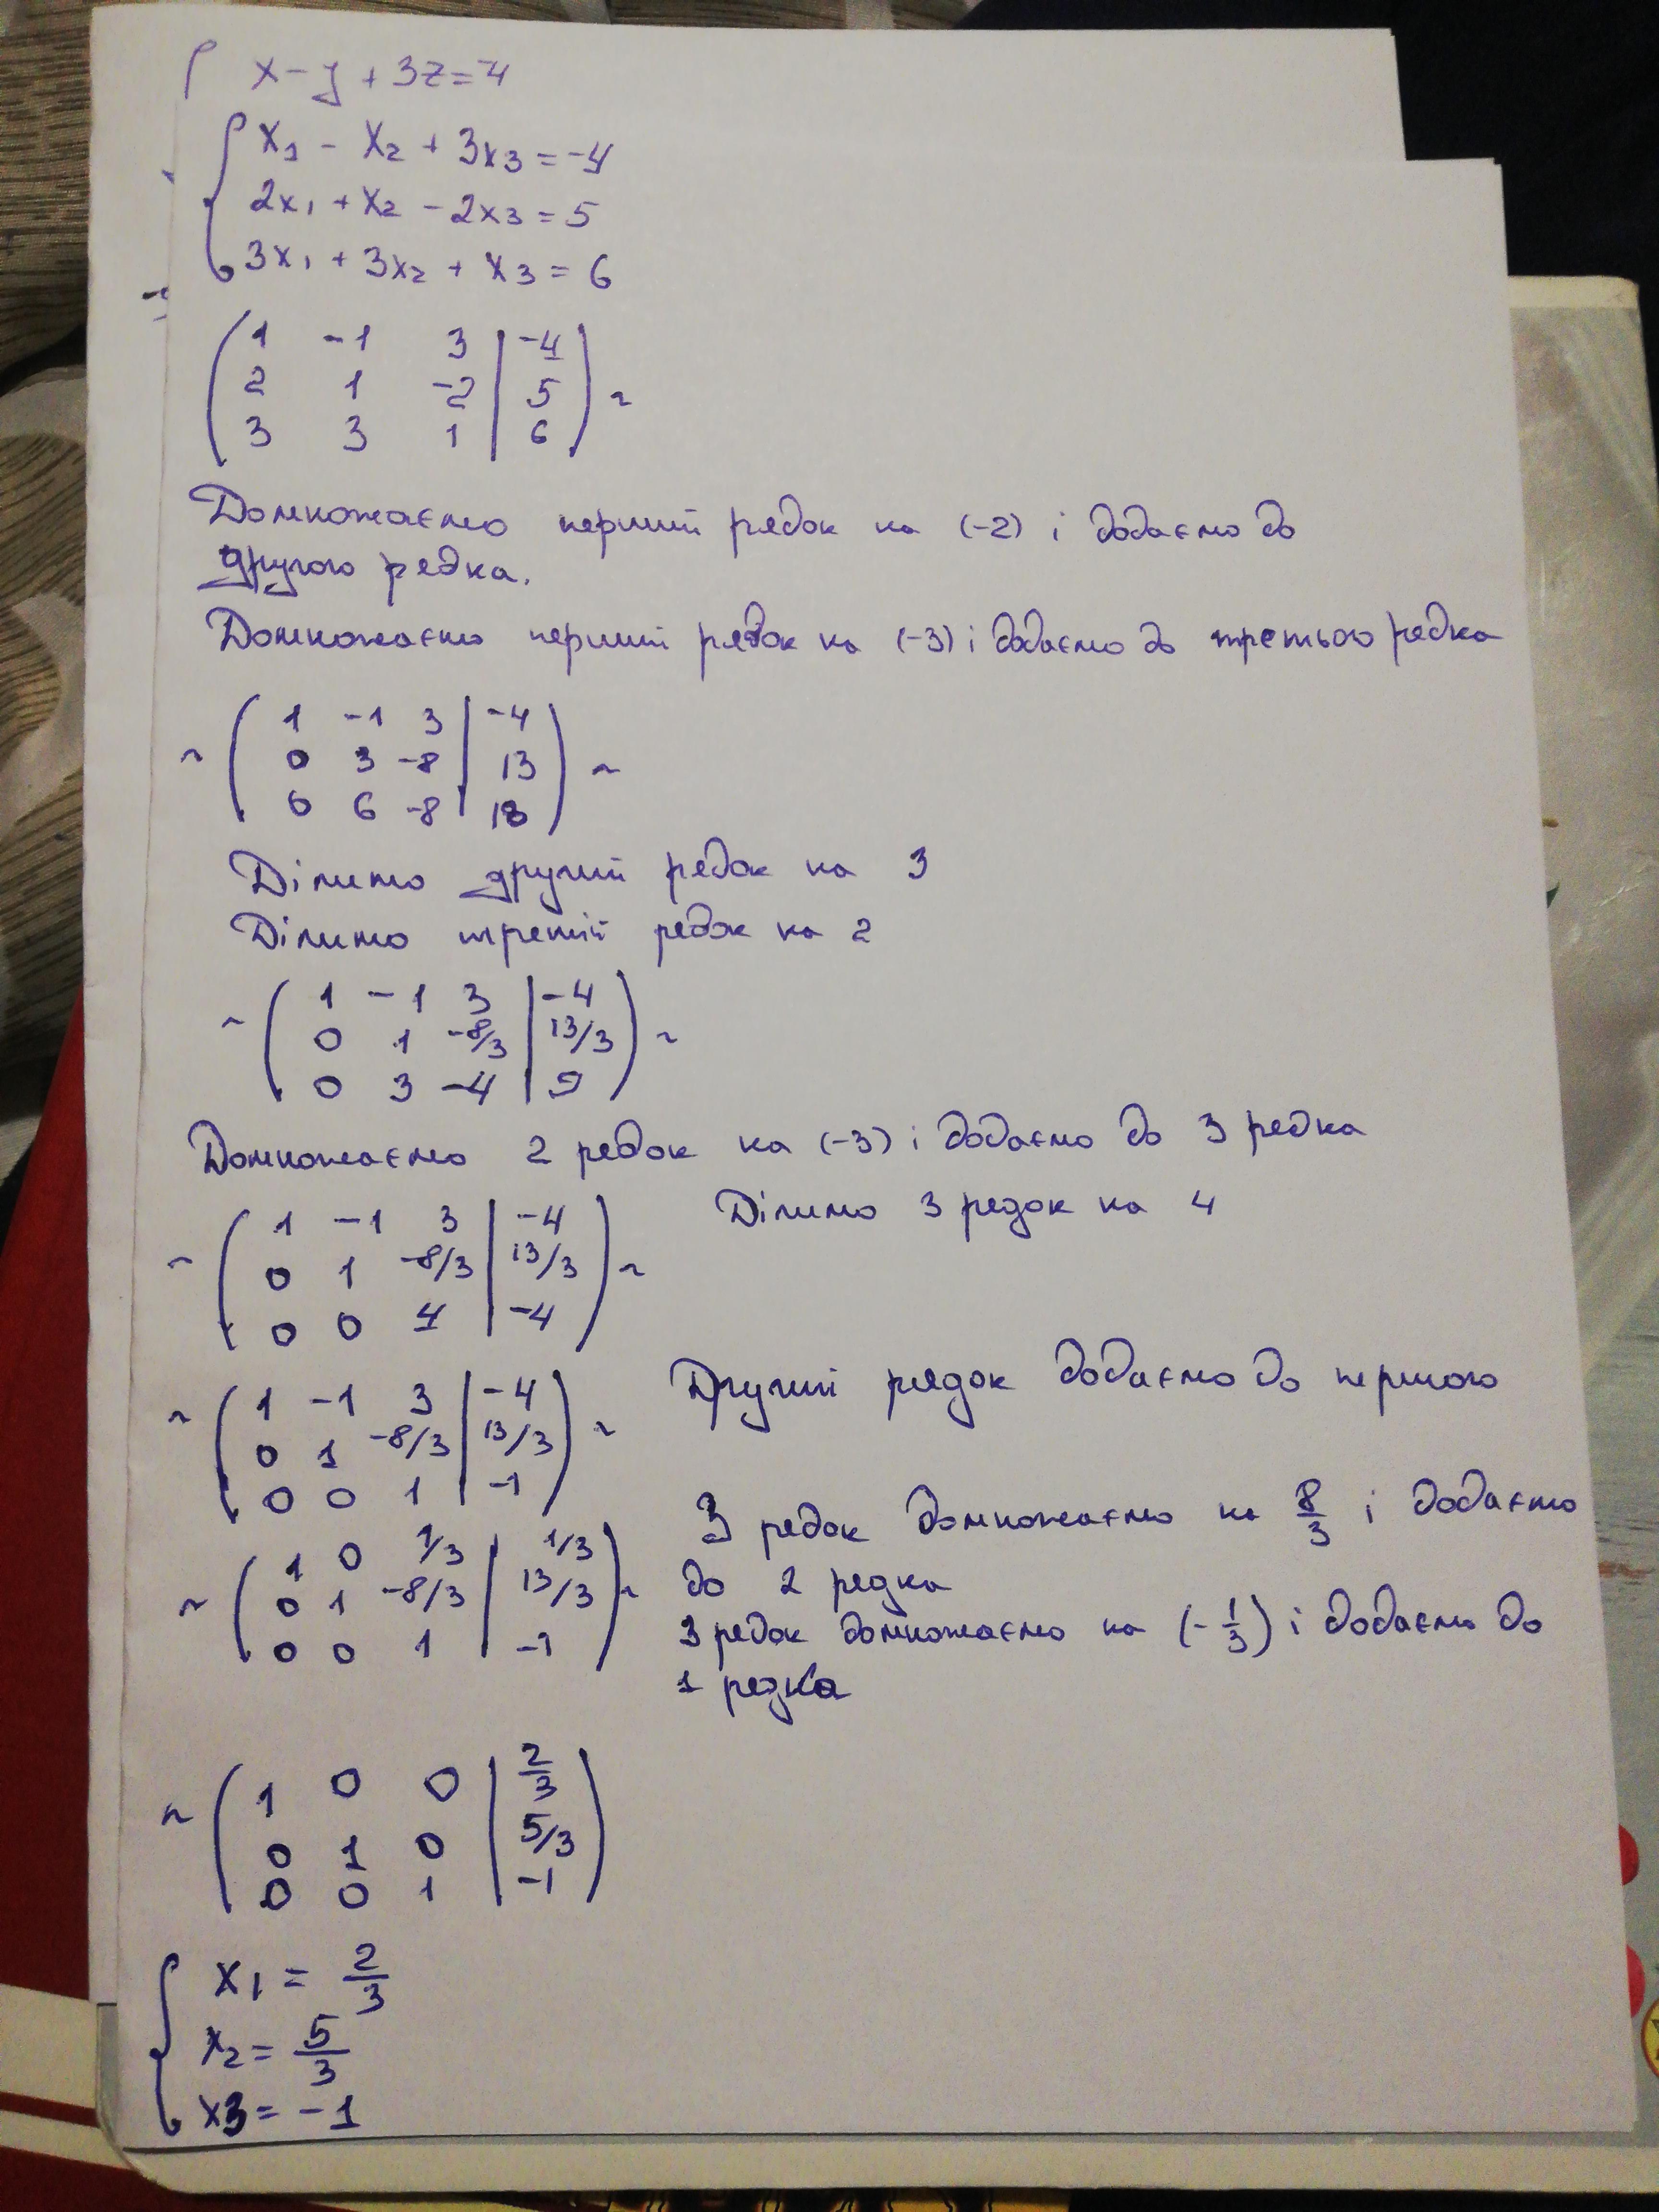 x - y + 3z = 4
x₁ - x₂ + 3x₃ = -4
2x₁ + x₂ - 2x₃ = 5
3x₁ + 3x₂ + x₃ = 6
( 1 -1 3 | -4
2 1 -2 | 5
3 3 1 | 6 ) ~
Домножаємо перший рядок на (-2) і додаємо до
другого рядка.
Домножаємо перший рядок на (-3) і додаємо до третього рядка
~ ( 1 -1 3 | -4
0 3 -8 | 13
0 6 -8 | 18 ) ~
Ділимо другий рядок на 3
Ділимо третій рядок на 2
~ ( 1 -1 3 | -4
0 1 -8/3 | 13/3
0 3 -4 | 9 ) ~
Домножаємо 2 рядок на (-3) і додаємо до 3 рядка
Ділимо 3 рядок на 4
~ ( 1 -1 3 | -4
0 1 -8/3 | 13/3
0 0 4 | -4 ) ~
Другий рядок додаємо до першого
~ ( 1 -1 3 | -4
0 1 -8/3 | 13/3
0 0 1 | -1 ) ~
3 рядок домножаємо на 8/3 і додаємо
до 2 рядка
3 рядок домножаємо на (-1/3) і додаємо до
1 рядка
~ ( 1 0 1/3 | 1/3
0 1 -8/3 | 13/3
0 0 1 | -1 ) ~
~ ( 1 0 0 | 2/3
0 1 0 | 5/3
0 0 1 | -1 )
x₁ = 2/3
x₂ = 5/3
x3 = -1